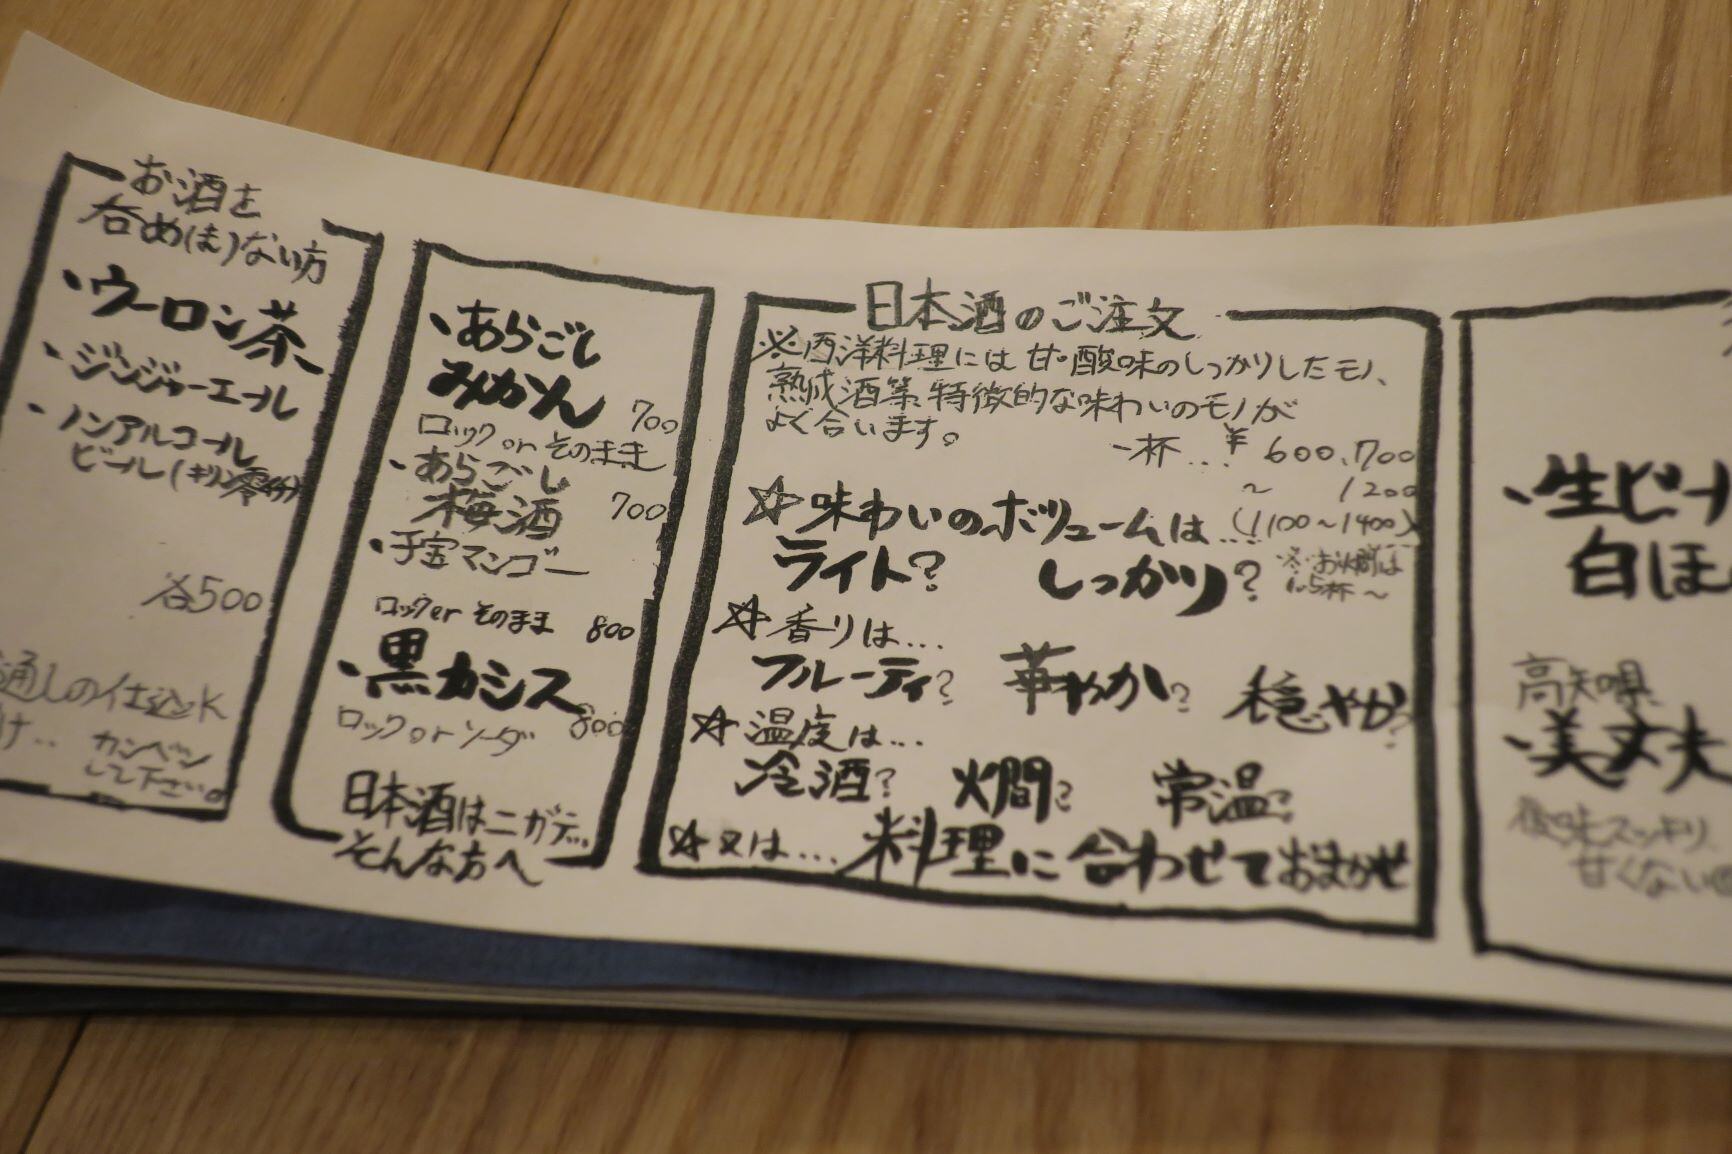 お酒を
呑め(ま)ない方
・ウーロン茶
・ジンジャーエール
・ノンアルコール
ビール(キリン零ICHI)
各500
通しの仕込
け… カンベン
して下さい。
・あらごし
みかん 700
ロック or そのまま
・あらごし
梅酒 700
・子宝マンゴー
ロック or そのまま 800
・黒カシス
ロック or ソーダ 800
日本酒はニガテ…
そんな方へ
日本酒のご注文
※西洋料理には甘・酸味のしっかりしたモノ、
熟成酒等、特徴的な味わいのモノが
よく合います。
一杯…¥600,700
～ 1200
(1100～1400)
☆味わいのボリュームは…
ライト? しっかり?
※お燗は
1.5杯～
☆香りは…
フルーティ? 華やか? 穏やか?
☆温度は…
冷酒? 燗? 常温?
☆又は… 料理に合わせておまかせ
・生ビー
白ほ
高知県
・美丈夫
後味スッキリ
甘くない